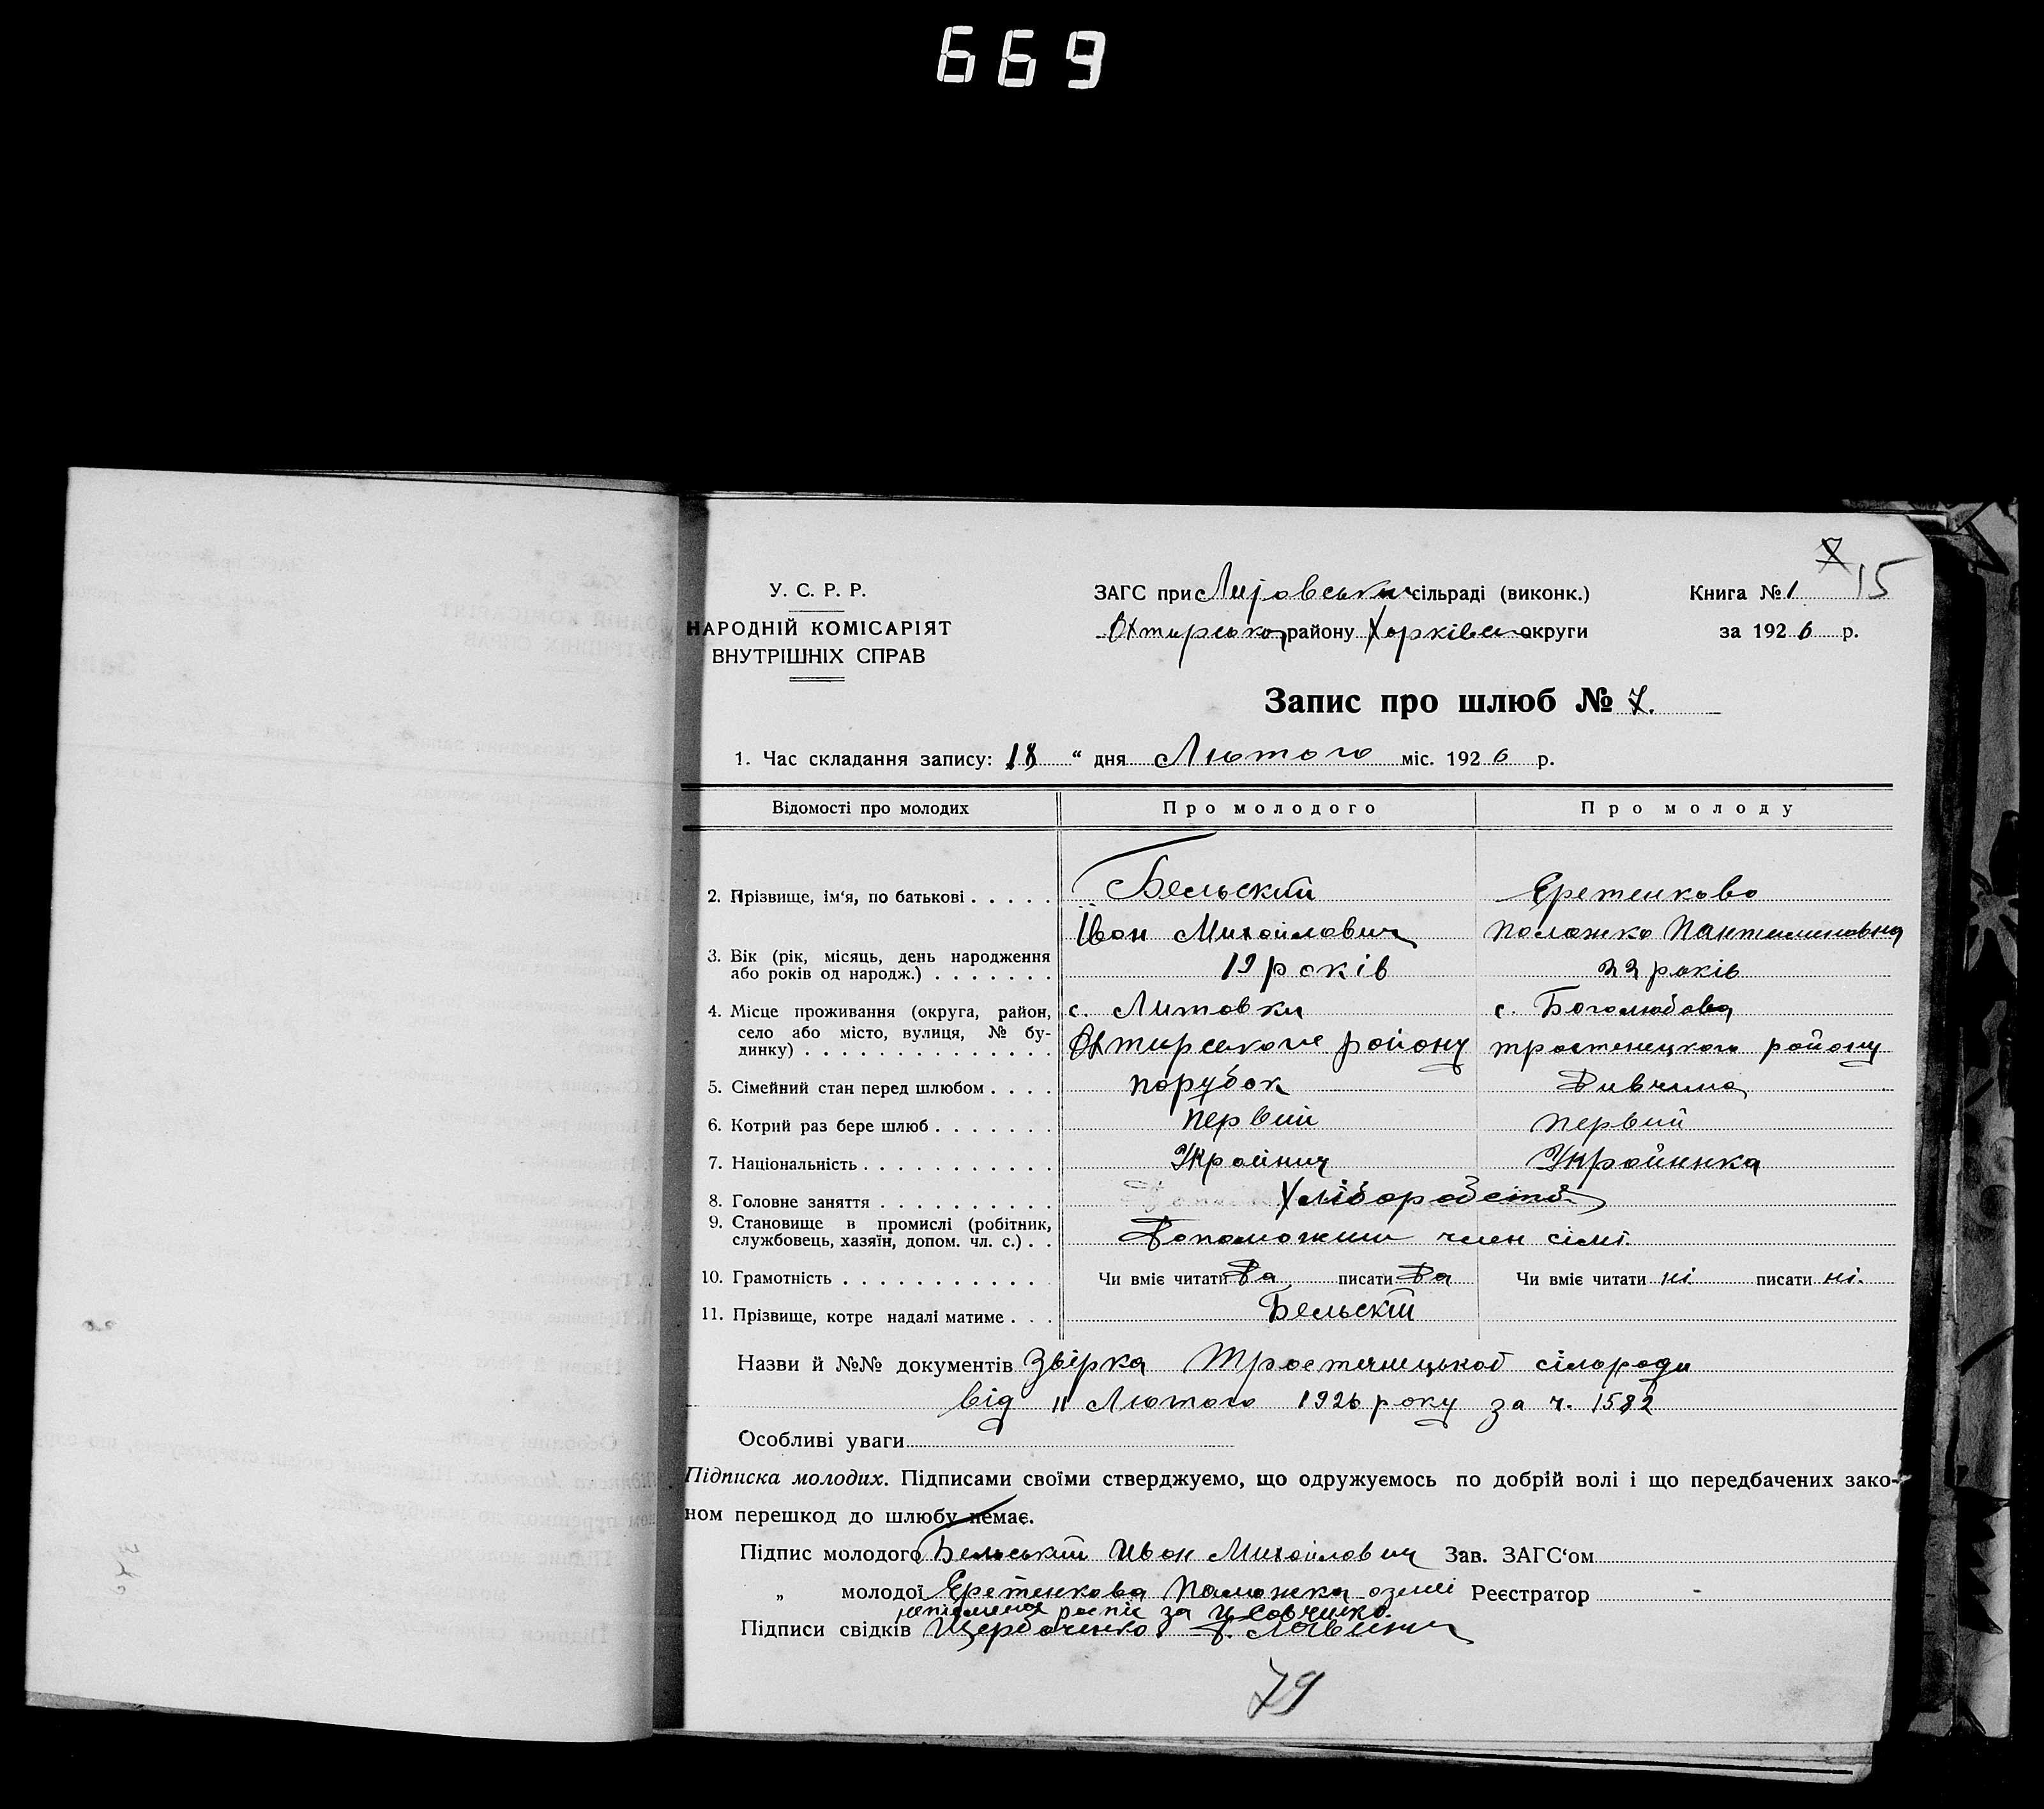 669
7 15
У. С. Р. Р.
НАРОДНІЙ КОМІСАРІЯТ
ВНУТРІШНІХ СПРАВ
ЗАГС при сільраді (виконк.)
Охтирського району Харківськ округи
Книга № 1
за 1926 р.
Запис про шлюб № 7.
1. Час складання запису: 18 “ дня Лютого міс. 1926 р.
Відомості про молодих Про молодого Про молоду
2. Прізвище, ім‘я, по батькові . . . . . Бельский Еретенкова
Іван Михайлович Палажка Пантилимовна
3. Вік (рік, місяць, день народження
або років од народж.) . . . . . . . 19 років 22 років
4. Місце проживання (округа, район, с. Литовки с. Боголюбова
село або місто, вулиця, № бу-
динку) . . . . . . . . . . . . . . Охтирского району тростенецкого району
5. Сімейний стан перед шлюбом . . . . парубок Дивчина
6. Котрий раз бере шлюб . . . . . . . первий первий
7. Національність . . . . . . . . . . . Украінич Украйинка
8. Головне заняття . . . . . . . . . . Хліборобств
9. Становище в промислі (робітник,
службовець, хазяїн, допом. чл. с.) . . Допоможний член сімї.
10. Грамотність . . . . . . . . . . . Чи вміє читати Да писати Да Чи вміє читати ні писати ні.
11. Прізвище, котре надалі матиме . . . Бельскій
Назви й №№ документів Звірка Тростянецькоі сілоради
від 11 Лютого 1926 року за ч. 1582
Особливі уваги
Підписка молодих. Підписами своїми стверджуємо, що одружуємось по добрій волі і що передбачених зако-
ном перешкод до шлюбу немає.
Підпис молодого Бельський Иван Михайлович Зав. ЗАГС‘ом
„ молодої Еретенкова Палажка Реєстратор
за
Підписи свідків Щербаченко
79